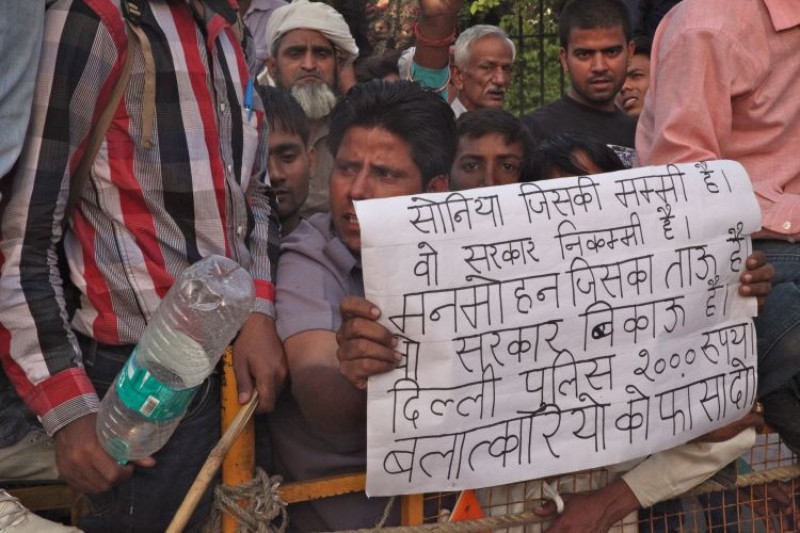 सोनिया जिसकी मम्मी है।
वो सरकार निकम्मी है।
मनमोहन जिसका ताऊ है
वो सरकार बिकाऊ है।
दिल्ली पुलिस २००० रूपया
बलात्कारियो को फांसी दो।